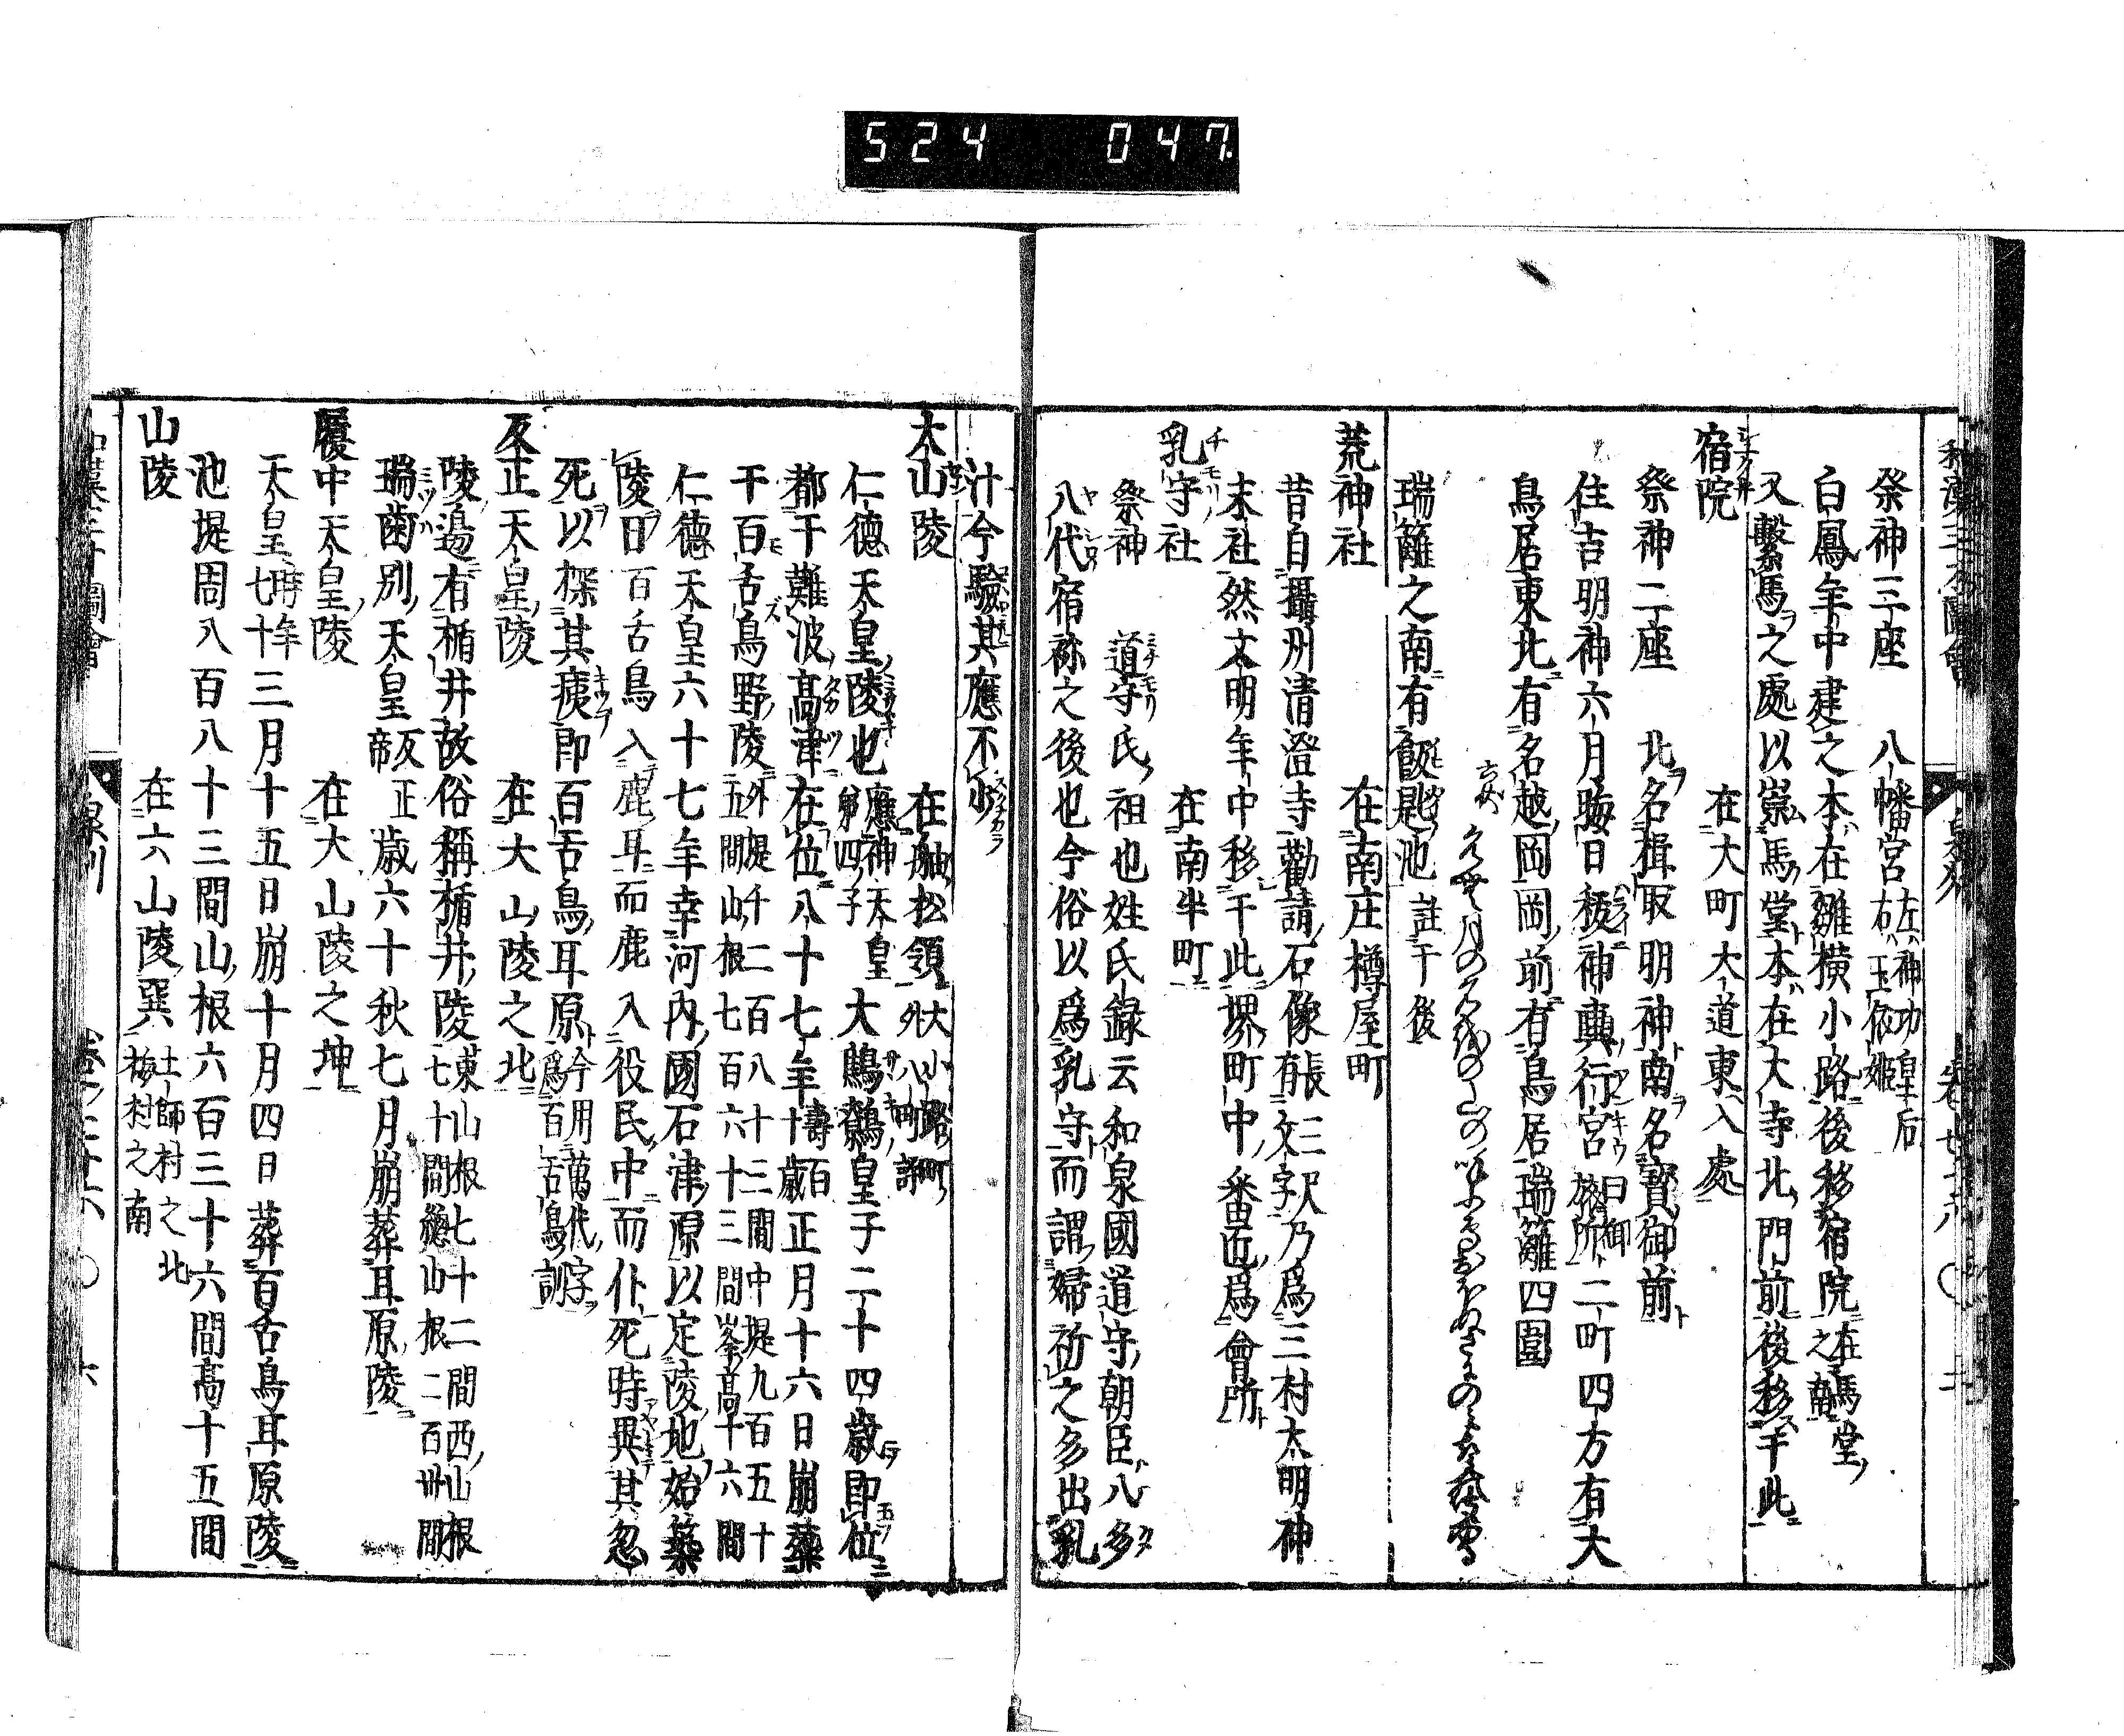 524 047
祭神三座 八幡宮 左神功皇后 右玉依姫
白鳳年中建之本在雖横小路後移宿院 在馬堂之南
又繋馬之處以崇馬堂本在大寺北門前後移于此
宿院 在大町大道東入處
祭神二座 北名揖取明神南名寶御前
住吉明神六月晦日秡神輿行宮 曰御旅所 二町四方有大
鳥居東北有名越岡岡前有鳥居瑞籬四圍
瑞籬之南有飯匙池 註于後
荒神社 在南庄樽屋町
昔自攝州清澄寺勸請石像 長三尺 有文字乃爲三村太明神
末社然文明年中移于此堺町中番匠爲會所
乳守社 在南半町
祭神 道守氏祖也姓氏録云和泉國道守朝臣八多
八代宿祢之後也今俗以爲乳守而謂婦祈之多出乳
汁今驗其應不少
大山陵 在舳松領 大小路町外八町許
仁德天皇陵也 應神天皇第四子 大鷦鷯皇子二十四歳即位
都于難波高津在位八十七年 壽百十歳 正月十六日崩葬
于百舌鳥野陵 外堤千二百八十三間中堤九百五十五間山根七百六十三間峯高十六間
仁德天皇六十七年幸河內國石津原以定陵地始築
陵日百舌鳥入鹿耳而鹿入役民中而仆死時異其忽
死以探其痍即百舌鳥耳原 今用萬代字爲百舌鳥訓
反正天皇陵 在大山陵之北
陵邉有楯井故俗稱楯井陵 東山根七十二間西山根七十間總山根二百卅間
瑞齒別天皇 反正帝 歳六十秋七月崩葬耳原陵
履中天皇陵 在大山陵之坤
天皇 時年七十 三月十五日崩十月四日葬百舌鳥耳原陵
池堤周八百八十三間山根六百三十六間高十五間
山陵 在六山陵巽 土師村之北梅村之南